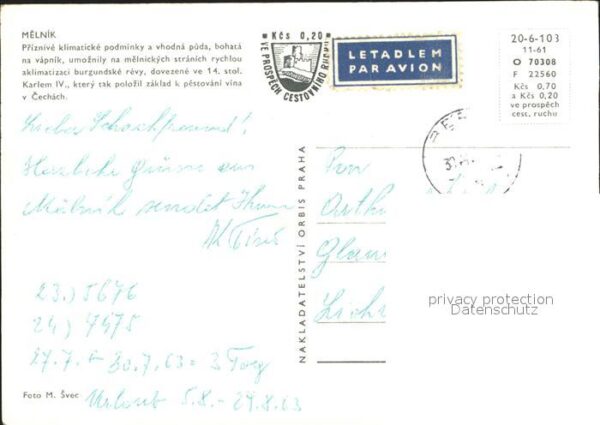 MĚLNÍK
Příznivé klimatické podmínky a vhodná půda, bohatá
na vápník, umožnily na mělnických stráních rychlou
aklimatizaci burgundské révy, dovezené ve 14. stol.
Karlem IV., který tak položil základ k pěstování vína
v Čechách.
Kčs 0,20
VE PROSPĚCH CESTOVNÍHO RUCHU
LETADLEM
PAR AVION
20-6-103
11-61
O 70308
F 22560
Kčs 0,70
a Kčs 0,20
ve prospěch
cest. ruchu
Lieber Schachfreund!
Herzliche Grüsse aus
Mělník sendet Ihnen
NAKLADATELSTVÍ ORBIS PRAHA
Pan
23.) 5676
24) 7475
27.7. - 30.7.63 = 3 Tag
Urlaub 5.8. - 24.8.63
Foto M. Švec
privacy protection
Datenschutz